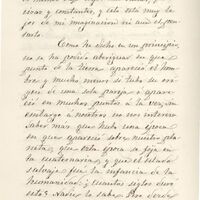 cisos y constantes, y esto está muy le
jos de mi imaginacion ni aun el pen
sarlo.
Como he dicho en un principio,
no se ha podido averiguar en que
punto de la tierra apareció el hom
bre y mucho menos si tubo su ori
gen de una sola pareja ó apareció
en muchos puntos a la vez, sin
embargo a nosotros no nos interesa
saber mas que hubo una época
en que apareció sobre nuestro pla
neta, que esta época se fija en
la cuaternaria y que el estado
salvaje fue la infancia de la
humanidad ¿cuantos siglos duró
esta? Nadie lo sabe. Pero desde